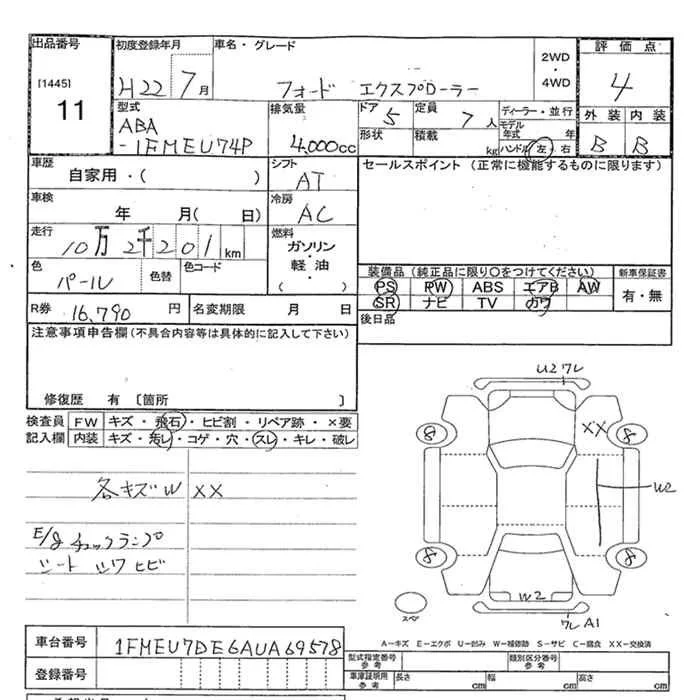 出品番号 初度登録年月 車名・グレード 2WD ・ 4WD 評価点
[1445] 11 H22 7月 フォード エクスプローラー 4
型式 排気量 ドア 定員 ディーラー・並行 外装 内装
ABA -1FMEU74P 4,000cc 5 7人 モデル年式 年 B B
形状 積載 kg ハンドル 左・右
車歴 シフト セールスポイント (正常に機能するものに限ります)
自家用・( ) AT
車検 冷房
年 月( 日) AC
走行 燃料
10万2千201km ガソリン・軽油・( )
色 色替 色コード
パール
装備品 (純品に限り○をつけてください) 新車保証書
PS PW ABS エアB AW 有・無
SR ナビ TV カワ
R券 16,790円 名変期限 月 日 後日品
注意事項申告欄 (不具合内容等は具体的に記入して下さい)
修復歴 有 〔箇所 〕
検査員 FW キズ・飛石・ヒビ割・リペア跡・×要
記入欄 内装 キズ・汚レ・コゲ・穴・スレ・キレ・破レ
各キズW XX
E/g チェックランプ
シート シワ ヒビ
U2 ワレ
XX
8 8
U2
8 8
W2
ワレ A1
スペア
A-キズ E-エクボ U-凹み W-補修跡 S-サビ C-腐食 XX-交換済
車台番号 1FMEU7DE6AUA69578
登録番号
型式指定番号 参考 類別区分番号 参考
車庫証明用 参考 長さ cm 幅 cm 高さ cm